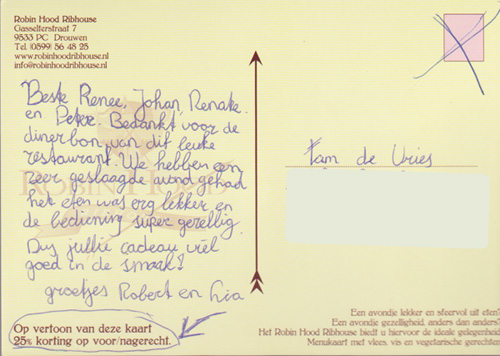 Robin Hood Ribhouse
Gasselterstraat 7
9533 PC Drouwen
Tel. (0599) 56 48 25
www.robinhoodribhouse.nl
info@robinhoodribhouse.nl
Beste Renee, Johan, Renate
en Peter. Bedankt voor de
dinerbon van dit leuke
restaurant. We hebben een
zeer geslaagde avond gehad
het eten was erg lekker en
de bediening super gezellig.
Dus jullie cadeau viel
goed in de smaak!
groetjes Robert en Lia
Op vertoon van deze kaart
25% korting op voor/nagerecht.
Fam de Vries
ROBIN HOOD
Een avondje lekker en sfeervol uit eten?
Een avondje gezelligheid, anders dan anders?
Het Robin Hood Ribhouse biedt u hiervoor de ideale gelegenheid
Menukaart met vlees, vis en vegetarische gerechten